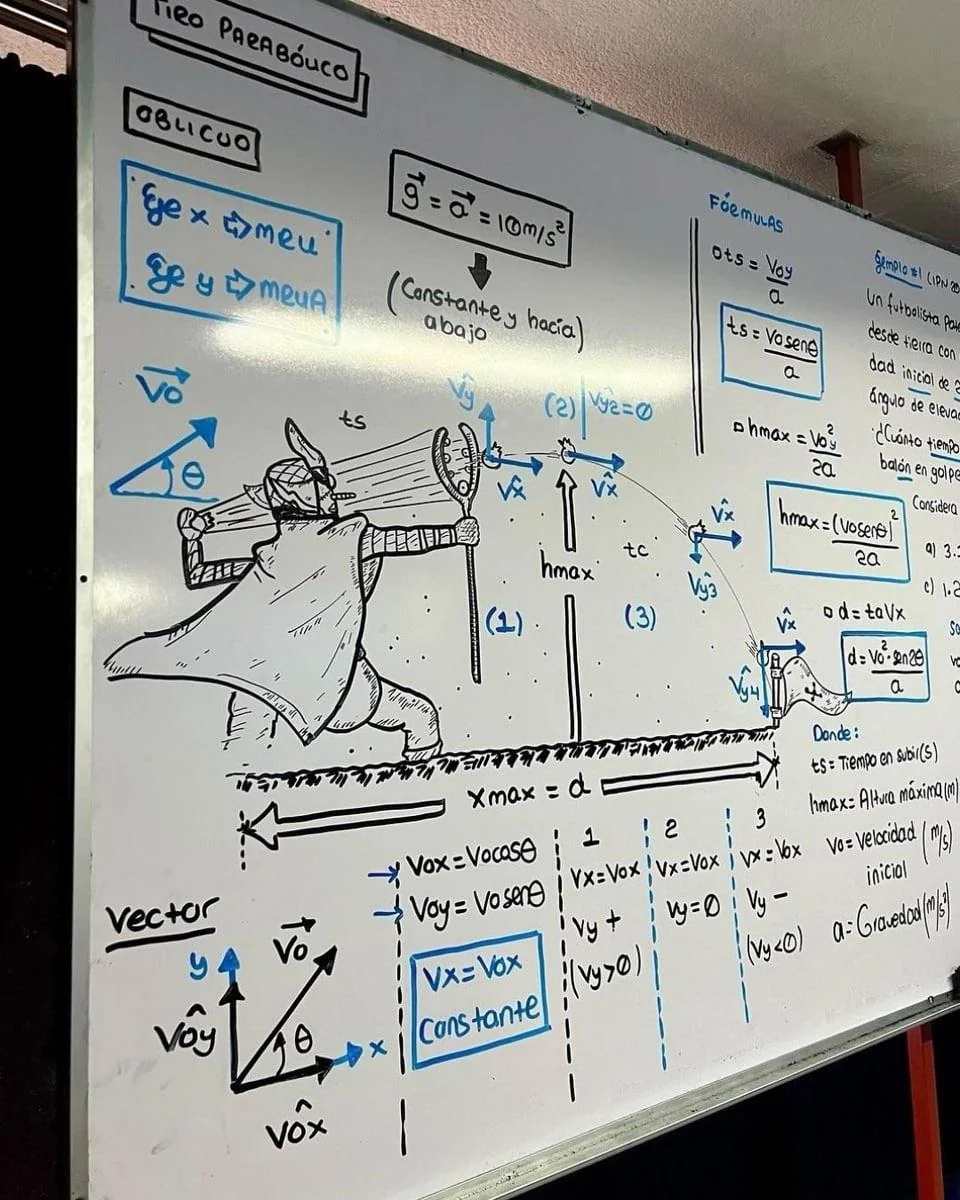 TIRO PARABÓLICO
OBLICUO
Eje x ⇨ MRU
Eje y ⇨ MRUA
g = a = 10m/s²
(Constante y hacia
abajo)
Vo
θ
ts
Vy
Vx
(2) Vy2=0
Vx
hmax
tc
Vx
Vy3
(1)
(3)
Vx
Vy4
xmax = d
FÓRMULAS
ts = Voy/a
ts = Vosenθ/a
hmax = Voy²/2a
hmax = (Vosenθ)²/2a
d = taVx
d = Vo²·sen2θ/a
Donde:
ts = Tiempo en subir(s)
hmax = Altura máxima(m)
Vo = Velocidad (m/s)
inicial
a = Gravedad (m/s²)
Ejemplo #1 (IPN
Un futbolista
desde tierra con
dad inicial de
ángulo de
¿Cuánto tiempo
balón en
Considera
a) 3.
c) 1.2
Vector
y
Vo
Voy
θ
x
Vox
→ Vox = Vocosθ
→ Voy = Vosenθ
Vx = Vox
Constante
1
Vx = Vox
Vy +
(Vy>0)
2
Vx = Vox
Vy = 0
3
Vx = Vox
Vy −
(Vy<0)